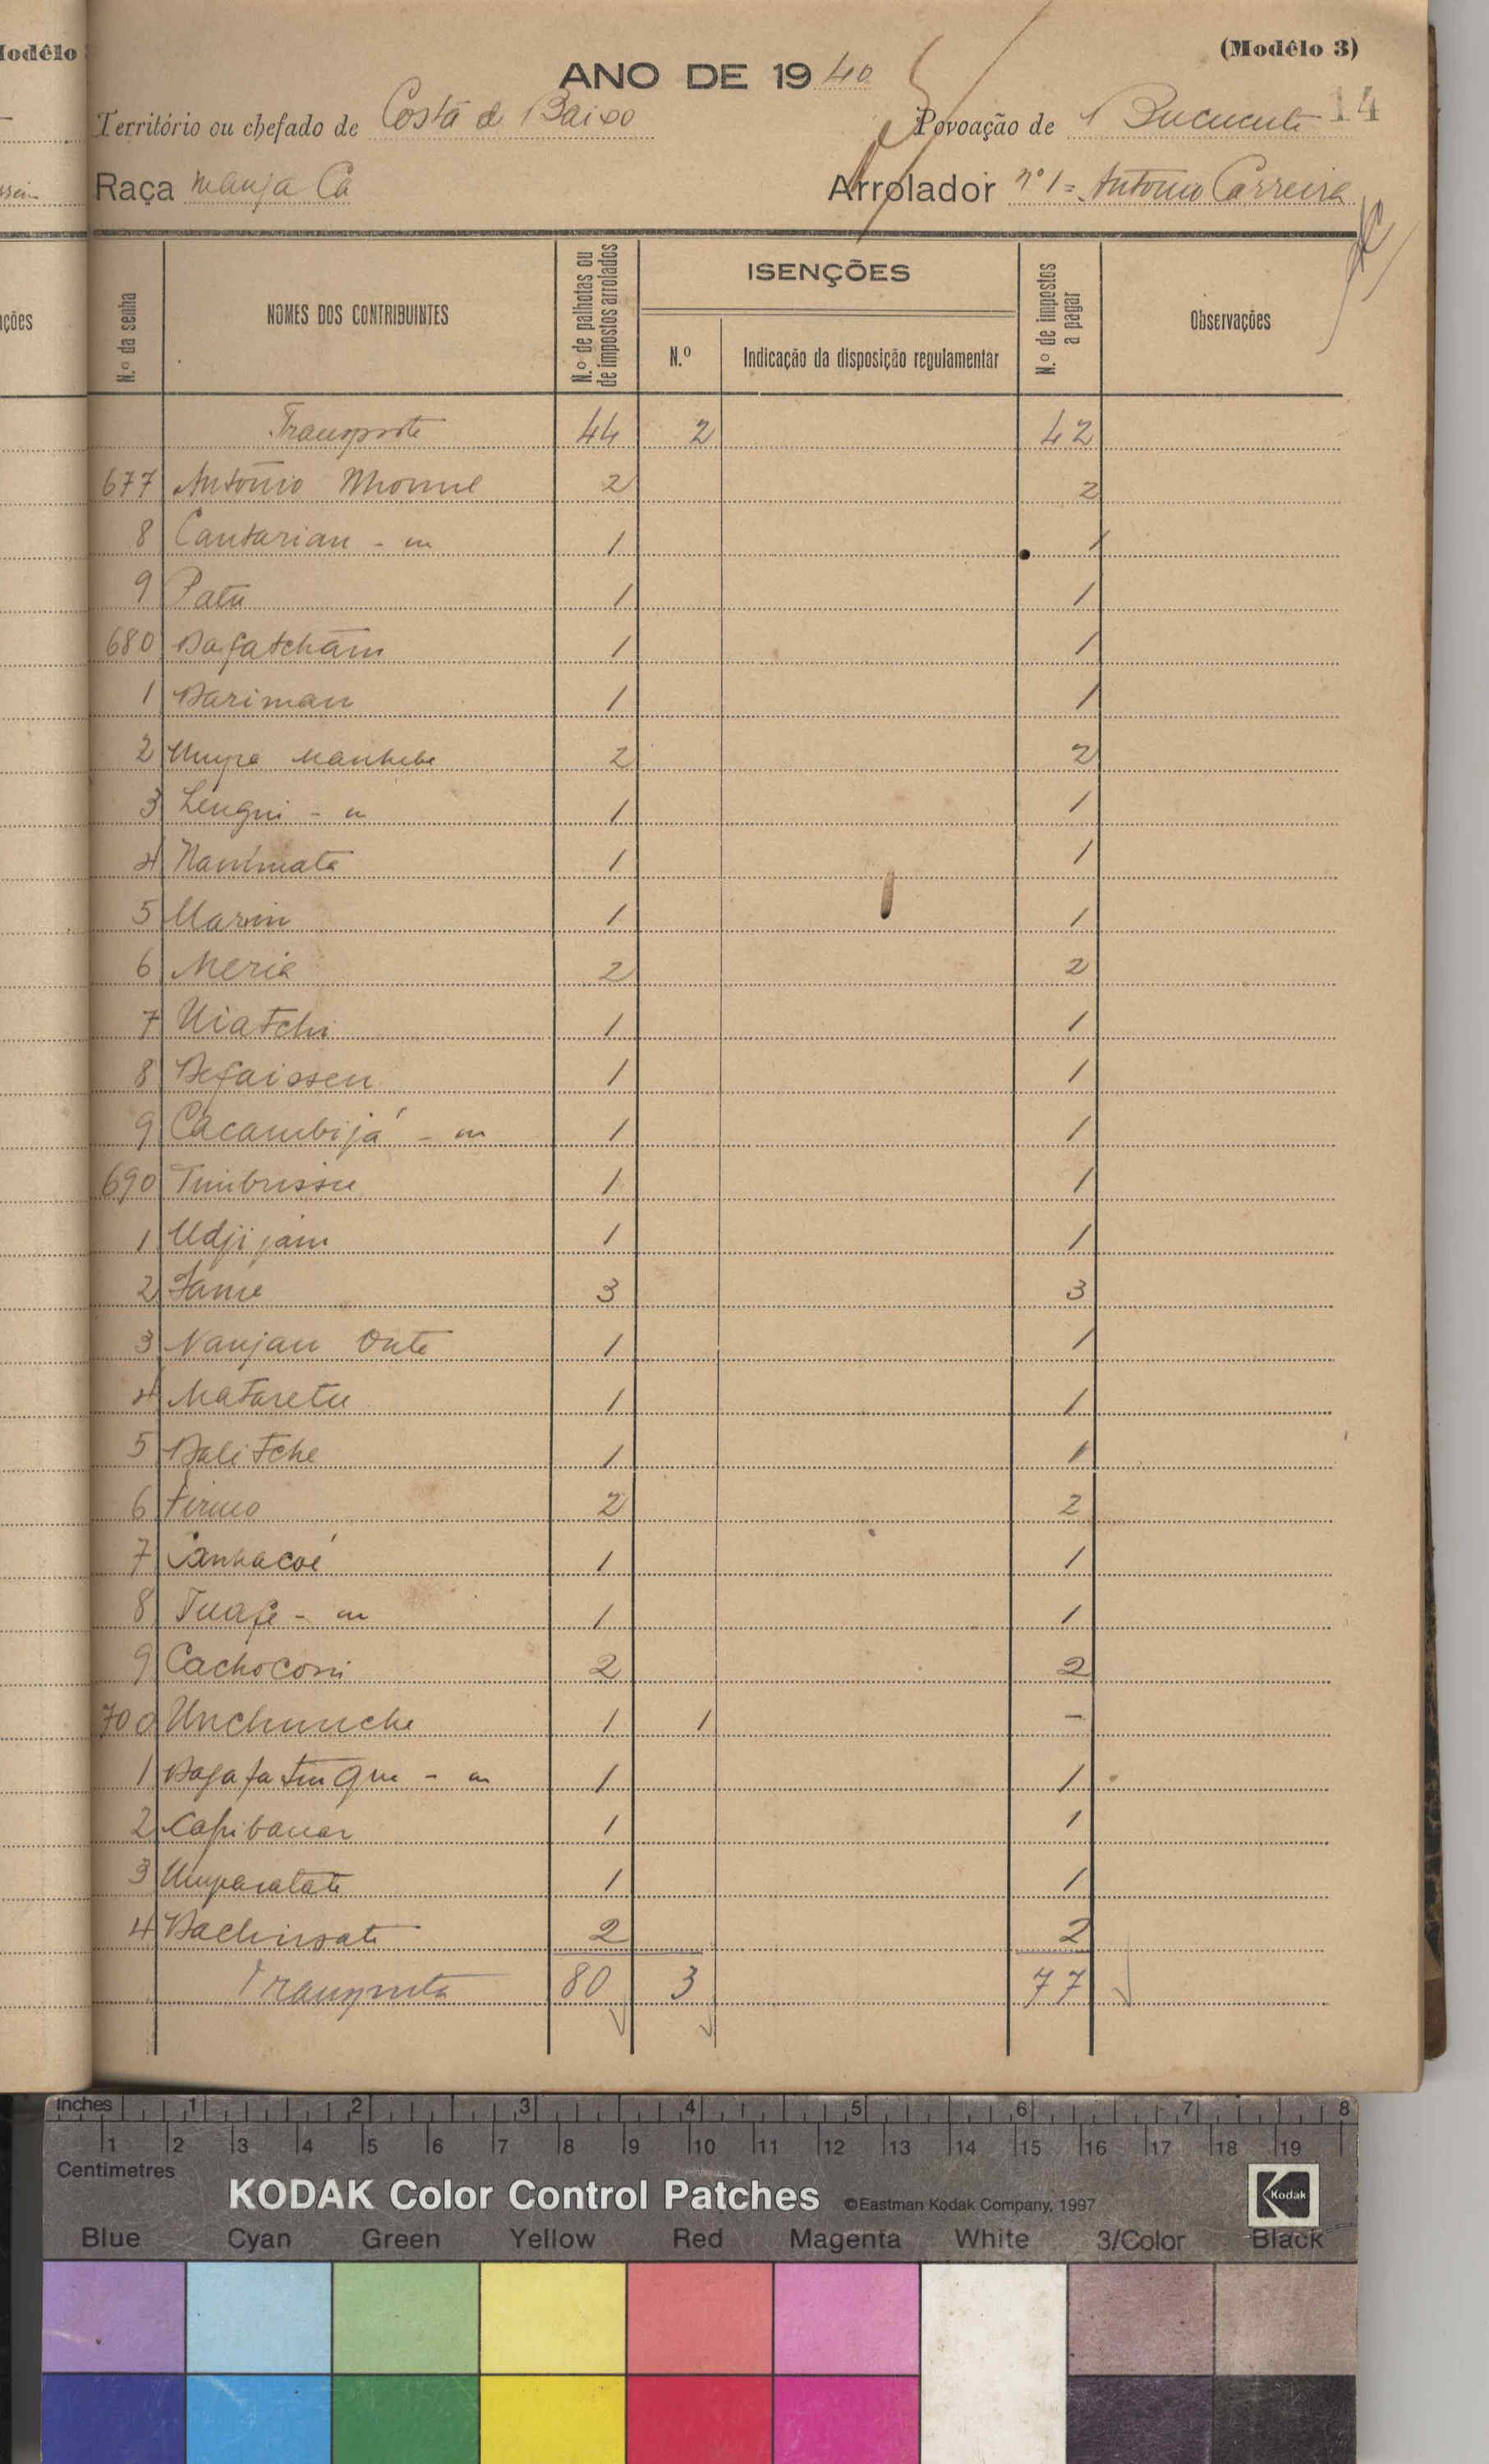 (Modêlo 3)
ANO DE 1940
14
Território ou chefado de Costa d Baixo Povoação de Bucucute
Raça Manjaca Arrolador nº 1 = António Carreira
N.º da senha NOMES DOS CONTRIBUINTES N.º de palhotas ou de impostos arrolados ISENÇÕES N.º de impostos a pagar Observações
N.º Indicação da disposição regulamentar
Transporte 44 2 42
677 António 2 2
8 Cantarian - m 1 1
9 Patu 1 1
680 Bafatcham 1 1
1 Bariman 1 1
2 2 2
3 Lengui - m 1 1
4 1 1
5 1 1
6 Meria 2 2
7 Uiatchi 1 1
8 Befaissen 1 1
9 Cacambijá - m 1 1
690 Timbrissu 1 1
1 Udjijam 1 1
2 3 3
3 Nanjan Onte 1 1
4 Mataretu 1 1
5 Balitche 1 1
6 Firmo 2 2
7 Canhacoé 1 1
8 Tuafe - m 1 1
9 Cachoconi 2 2
700 Unchunche 1 1 -
1 - m 1 1
2 1 1
3 1 1
4 2 2
Transporta 80 3 77
inches 1 2 3 4 5 6 7 8
1 2 3 4 5 6 7 8 9 10 11 12 13 14 15 16 17 18 19
Centimetres
KODAK Color Control Patches ©Eastman Kodak Company, 1997 Kodak
Blue Cyan Green Yellow Red Magenta White 3/Color Black